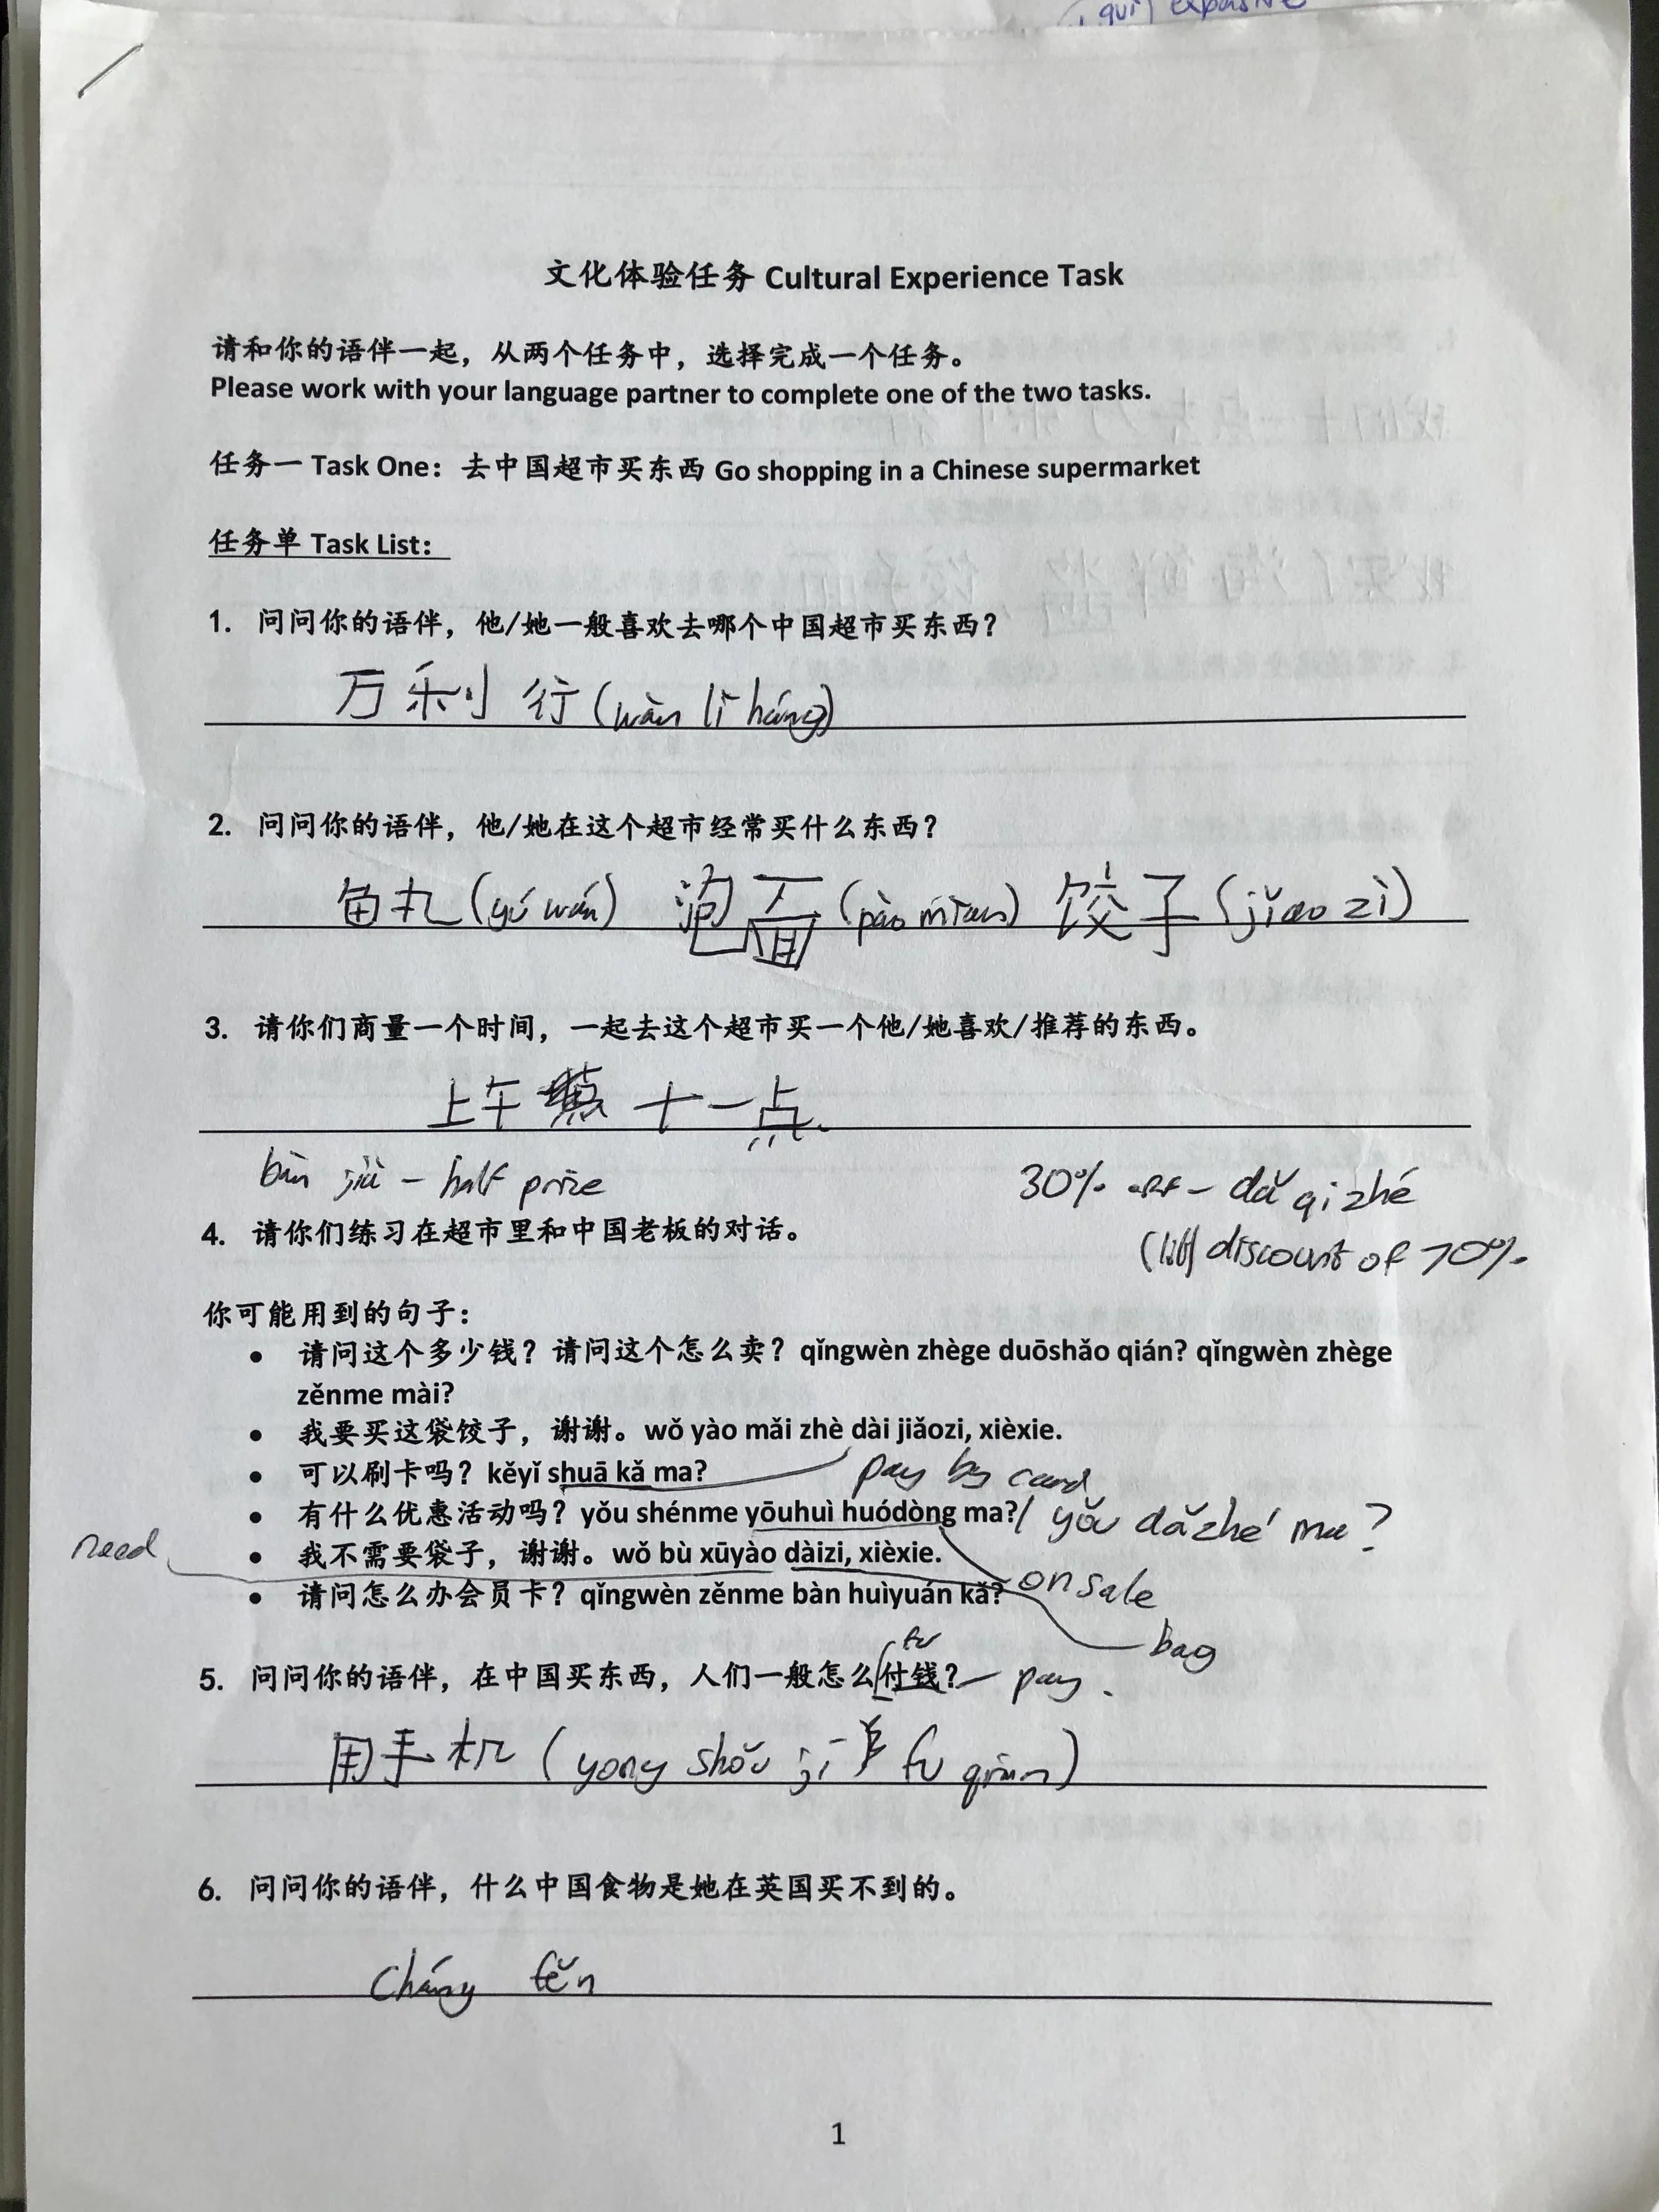 expensive
文化体验任务 Cultural Experience Task
请和你的语伴一起，从两个任务中，选择完成一个任务。
Please work with your language partner to complete one of the two tasks.
任务一 Task One：去中国超市买东西 Go shopping in a Chinese supermarket
任务单 Task List：
1. 问问你的语伴，他/她一般喜欢去哪个中国超市买东西？
万利行 (wàn lì háng)
2. 问问你的语伴，他/她在这个超市经常买什么东西？
鱼丸 (yú wán) 泡面 (pào mian) 饺子 (jiǎo zi)
3. 请你们商量一个时间，一起去这个超市买一个他/她喜欢/推荐的东西。
上午 十一点.
bàn jià – half price
30% off – dǎ qi zhé
(lit) discount of 70%.
4. 请你们练习在超市里和中国老板的对话。
你可能用到的句子：
• 请问这个多少钱？请问这个怎么卖？qǐngwèn zhège duōshǎo qián? qǐngwèn zhège
zěnme mài?
• 我要买这袋饺子，谢谢。wǒ yào mǎi zhè dài jiǎozi, xièxie.
• 可以刷卡吗？kěyǐ shuā kǎ ma? pay by card
• 有什么优惠活动吗？yǒu shénme yōuhuì huódòng ma?/ yǒu dǎzhé ma?
need
• 我不需要袋子，谢谢。wǒ bù xūyào dàizi, xièxie.
on sale
• 请问怎么办会员卡？qǐngwèn zěnme bàn huìyuán kǎ?
bag
fu
5. 问问你的语伴，在中国买东西，人们一般怎么付钱？– pay.
用手机 (yong shǒu jī fu qian)
6. 问问你的语伴，什么中国食物是她在英国买不到的。
Cháng fěn
1